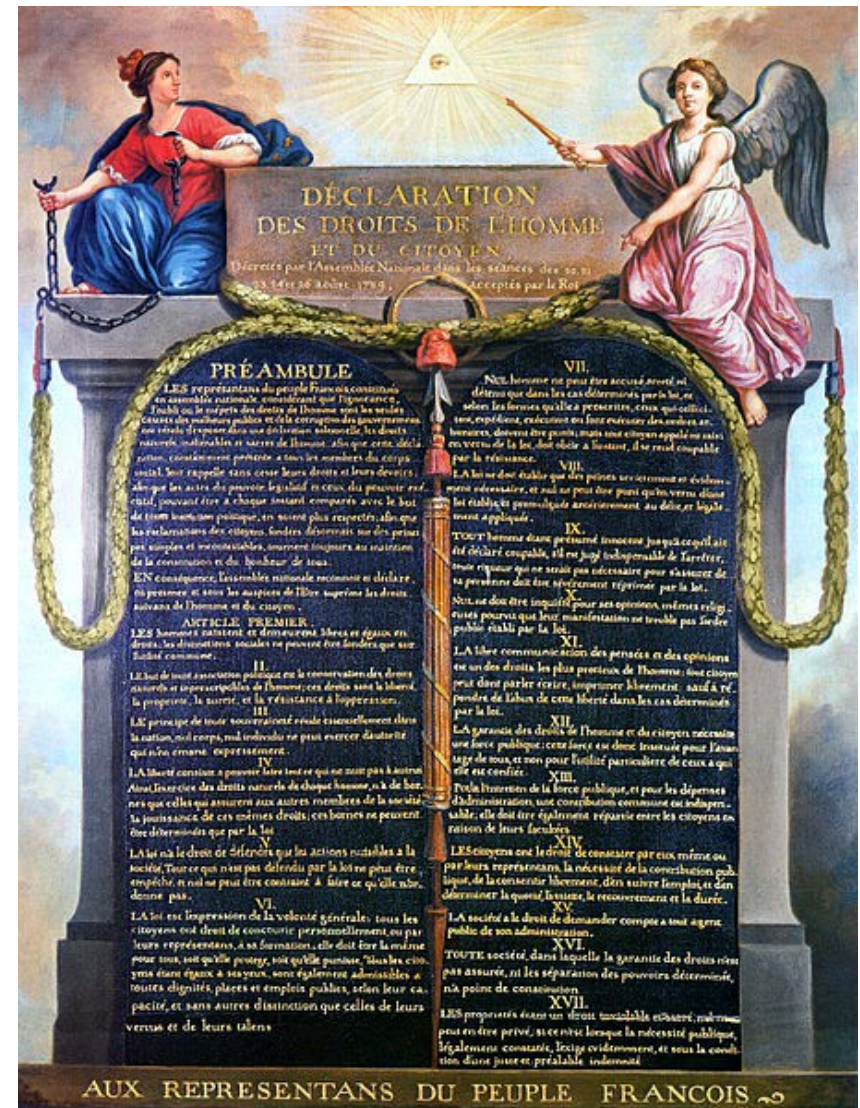 DÉCLARATION
DES DROITS DE L'HOMME
ET DU CITOYEN,
Décretés par l'Assemblée Nationale dans les séances des 20, 21
23, 24 et 26 août 1789, acceptés par le Roi
PRÉAMBULE
LES représantans du peuple François, constitués
en assemblée nationale, considérant que l'ignorance,
l'oubli ou le mépris des droits de l'homme sont les seules
causes des malheurs publics et de la corruption des gouvernemens
ont résolu d'exposer dans une déclaration solemnelle, les droits
naturels, inaliénables et sacrés de l'homme: afin que cette décla
ration, constamment présente a tous les membres du corps
social, leur rappelle sans cesse leurs droits et leurs devoirs
afin que les actes du pouvoir législatif et ceux du pouvoir exé
cutif, pouvant être à chaque instant comparés avec le but
de toute institution politique, en soient plus respectés; afin que
les reclamations des citoyens, fondées désormais sur des principes
simples et incontestables, tournent toujours au maintien
de la constitution et du bonheur de tous.
EN conséquence, l'assemblée nationale reconnoît et déclare
en présence et sous les auspices de l'Etre suprême les droits
suivans de l'homme et du citoyen.
ARTICLE PREMIER.
LES hommes naissent et demeurent libres et égaux en
droits; les distinctions sociales ne peuvent être fondées que sur
l'utilité commune.
II.
LE but de toute association politique est la conservation des droits
naturels et imprescriptibles de l'homme; ces droits sont la liberté,
la propriété, la sureté, et la résistance à l'oppression.
III.
LE principe de toute souveraineté réside essentiellement dans
la nation, nul corps, nul individu ne peut exercer d'autorité
qui n'en émane expressement.
IV.
LA liberté consiste a pouvoir faire tout ce qui ne nuit pas à autrui
Ainsi, l'exercice des droits naturels de chaque homme, n'a de bor
nes que celles qui assurent aux autres membres de la société
la jouissance de ces mêmes droits; ces bornes ne peuvent
être déterminées que par la loi
V.
LA loi n'a le droit de défendre que les actions nuisibles a la
société. Tout ce qui n'est pas défendu par la loi ne peut être
empêché, et nul ne peut être contraint à faire ce qu'elle n'or
donne pas.
VI.
LA loi est l'expression de la volonté générale; tous les
citoyens ont droit de concourir personnellement, ou par
leurs représentans, à sa formation; elle doit être la même
pour tous, soit qu'elle protege, soit qu'elle punisse, Tous les cito
yens étant égaux à ses yeux, sont également admissibles a
toutes dignités, places et emplois publics, selon leur ca
pacité, et sans autres distinction que celles de leurs
vertus et de leurs talens
VII.
NUL homme ne peut être accusé, arreté, ni
détenu que dans les cas déterminés par la loi, et
selon les formes qu'elle a prescrites, ceux qui sollici
tent, expédient, exécutent ou font exécuter des ordres ar
bitraires, doivent être punis; mais tout citoyen appelé ou saisi
en vertu de la loi, doit obéir a l'instant, il se rend coupable
par la résistance.
VIII.
LA loi ne doit établir que des peines strictement et évidem
ment nécessaire, et nul ne peut être puni qu'en vertu d'une
loi établie, et promulguée antérieurement au délit, et légale
ment appliquée.
IX.
TOUT homme étant présumé innocent jusqu'à ce qu'il ait
été déclaré coupable, s'il est jugé indispensable de l'arrêter,
toute rigueur qui ne serait pas nécessaire pour s'assurer de
sa personne doit être sévèrement réprimée par la loi.
X.
NUL ne doit être inquiété pour ses opinions, mêmes religi
euses pourvu que leur manifestation ne trouble pas l'ordre
public établi par la loi.
XI.
LA libre communication des pensées et des opinions
est un des droits les plus precieux de l'homme; tout citoyen
peut donc parler écrire, imprimer librement: sauf à ré
pondre de l'abus de cette liberté dans les cas déterminés
par la loi.
XII.
LA garantie des droits de l'homme et du citoyen nécessite
une force publique; cette force est donc instituée pour l'avan
tage de tous, et non pour l'utilité particuliere de ceux a qui
elle est confiée.
XIII.
POUR l'entretien de la force publique, et pour les dépenses
d'administration, une contribution commune est indispen
sable; elle doit être également répartie entre les citoyens en
raison de leurs facultées
XIV.
LES citoyens ont le droit de constater par eux même ou
par leurs représentans, la nécessité de la contribution pub
lique, de la consentir librement, d'en suivre l'emploi, et d'en
déterminer la quotité, l'assiette, le recouvrement et la durée.
XV.
LA société a le droit de demander compte a tout agent
public de son administration.
XVI.
TOUTE société, dans laquelle la garantie des droits n'est
pas assurée, ni les séparation des pouvoirs déterminée,
n'a point de constitution
XVII.
LES propriétés étant un droit inviolable et sacré, nul ne
peut en être privé, si ce n'est lorsque la nécessité publique,
légalement constatée, l'exige evidemment, et sous la condi
tion d'une juste et préalable indemnité
AUX REPRESENTANS DU PEUPLE FRANCOIS